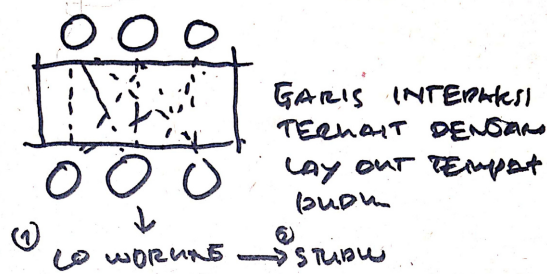 GARIS INTERAKSI
TERKAIT DENGAN
LAY OUT TEMPAT
DUDUK
① CO WORKING → ② STUDIO